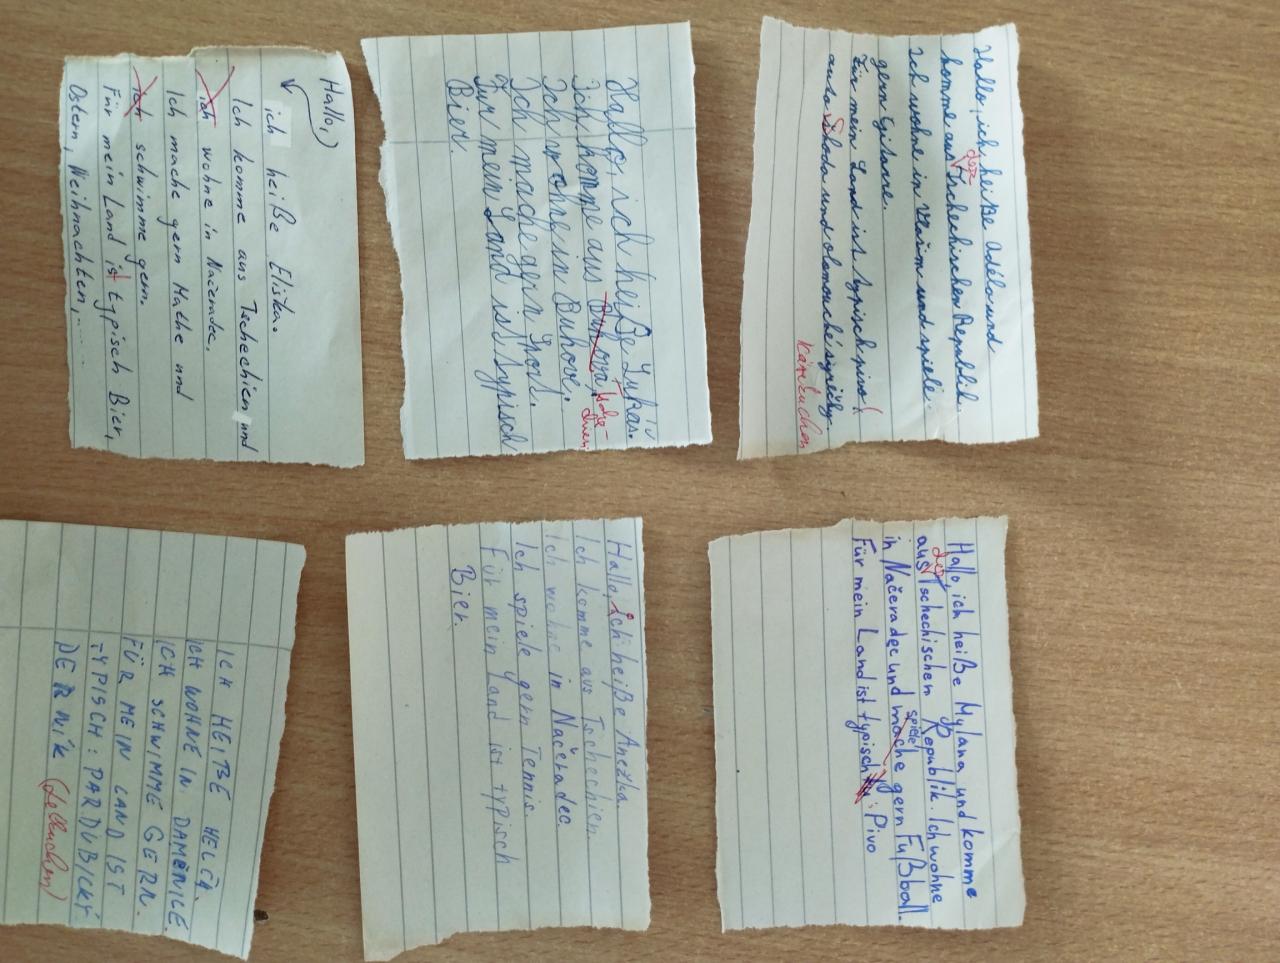 Hallo,
ich heiße Eliška.
Ich komme aus Tschechien und
ich wohne in Načeradec.
Ich mache gern Mathe und
ich schwimme gern.
Für mein Land ist typisch Bier,
Ostern, Weihnachten,.....
Hallo, ich heiße Lukas.
Ich komme aus
Ich wohne in
Ich mache gern Sport.
Für mein Land ist typisch
Bier.
Hallo, ich heiße Adéla und
komme aus der Tschechischen Republik.
Ich wohne in Vlašim und spiele
gern Gitarre.
Für mein Land ist typisch pivo,
auto Škoda und olomoucké syrečky.
ICH HEIẞE HELČA.
ICH WOHNE IN DAMĚNICE.
ICH SCHWIMME GERN.
FÜR MEIN LAND IST
TYPISCH: PARDUBICKÝ
PERNÍK (Lebkuchen)
Hallo, ich heiße Anežka.
Ich komme aus Tschechien.
Ich wohne in Načeradec.
Ich spiele gern Tennis.
Für mein Land ist typisch
Bier.
Hallo ich heiße Mylana und komme
aus der Tschechischen Republik. Ich wohne
in Načeradec und mache spiele gern Fußball.
Für mein Land ist typisch : Pivo